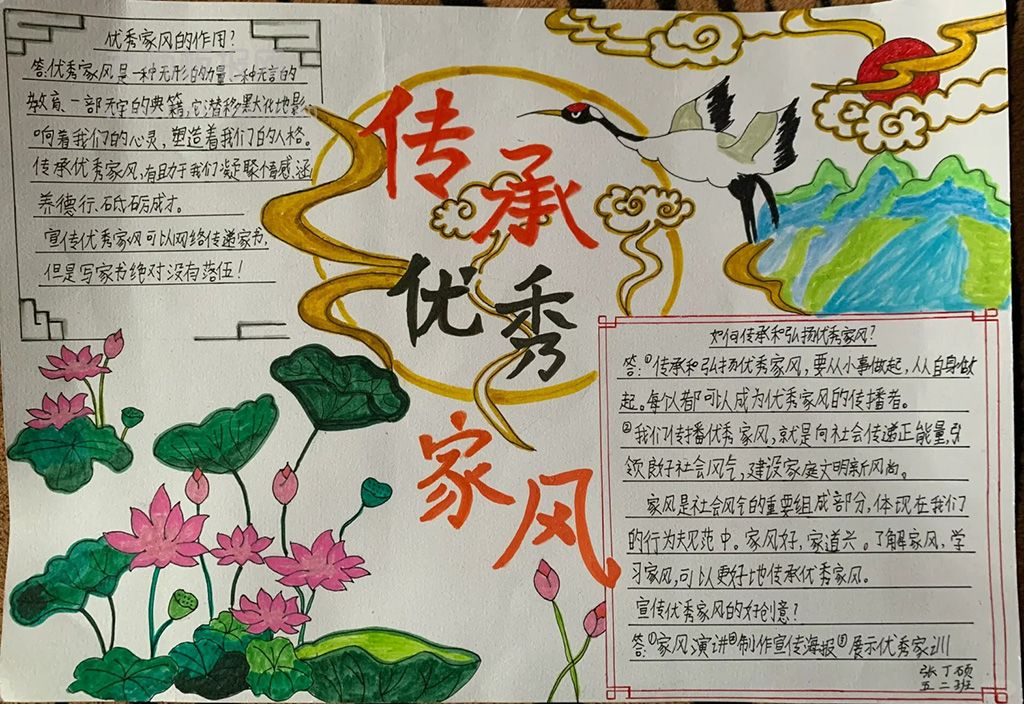 优秀家风的作用？
答:优秀家风是一种无形的力量、一种无言的
教育、一部无字的典籍,它潜移默大化地影
响着我们的心灵，塑造着我们的人格。
传承优秀家风,有助于我们凝聚情感、涵
养德行、砥砺成才。
宣传优秀家风可以网络传递家书,
但是写家书绝对没有落伍！
传承
优秀
家风
如何传承和弘扬优秀家风？
答:①传承和弘扬优秀家风,要从小事做起,从自身做
起。每个人都可以成为优秀家风的传播者。
②我们传播优秀家风,就是向社会传递正能量,引
领良好社会风气,建设家庭文明新风尚。
家风是社会风气的重要组成部分,体现在我们
的行为规范中。家风好,家道兴。了解家风,学
习家风,可以更好地传承优秀家风。
宣传优秀家风的好创意？
答:①家风演讲②制作宣传海报③展示优秀家训
张丁硕
五二班